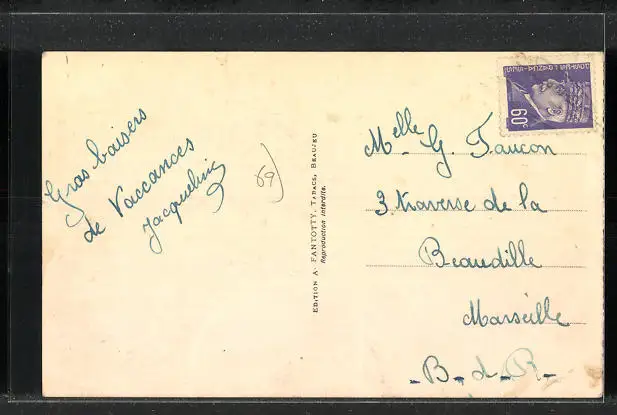 Gros baisers
de Vaccances
Jacqueline
69
EDITION A. FANTOTTY, TABACS, BEAUJEU
Reproduction interdite.
60c
Melle G. Faucon
3 traverse de la
Beaudille
Marseille
- B - d - R -